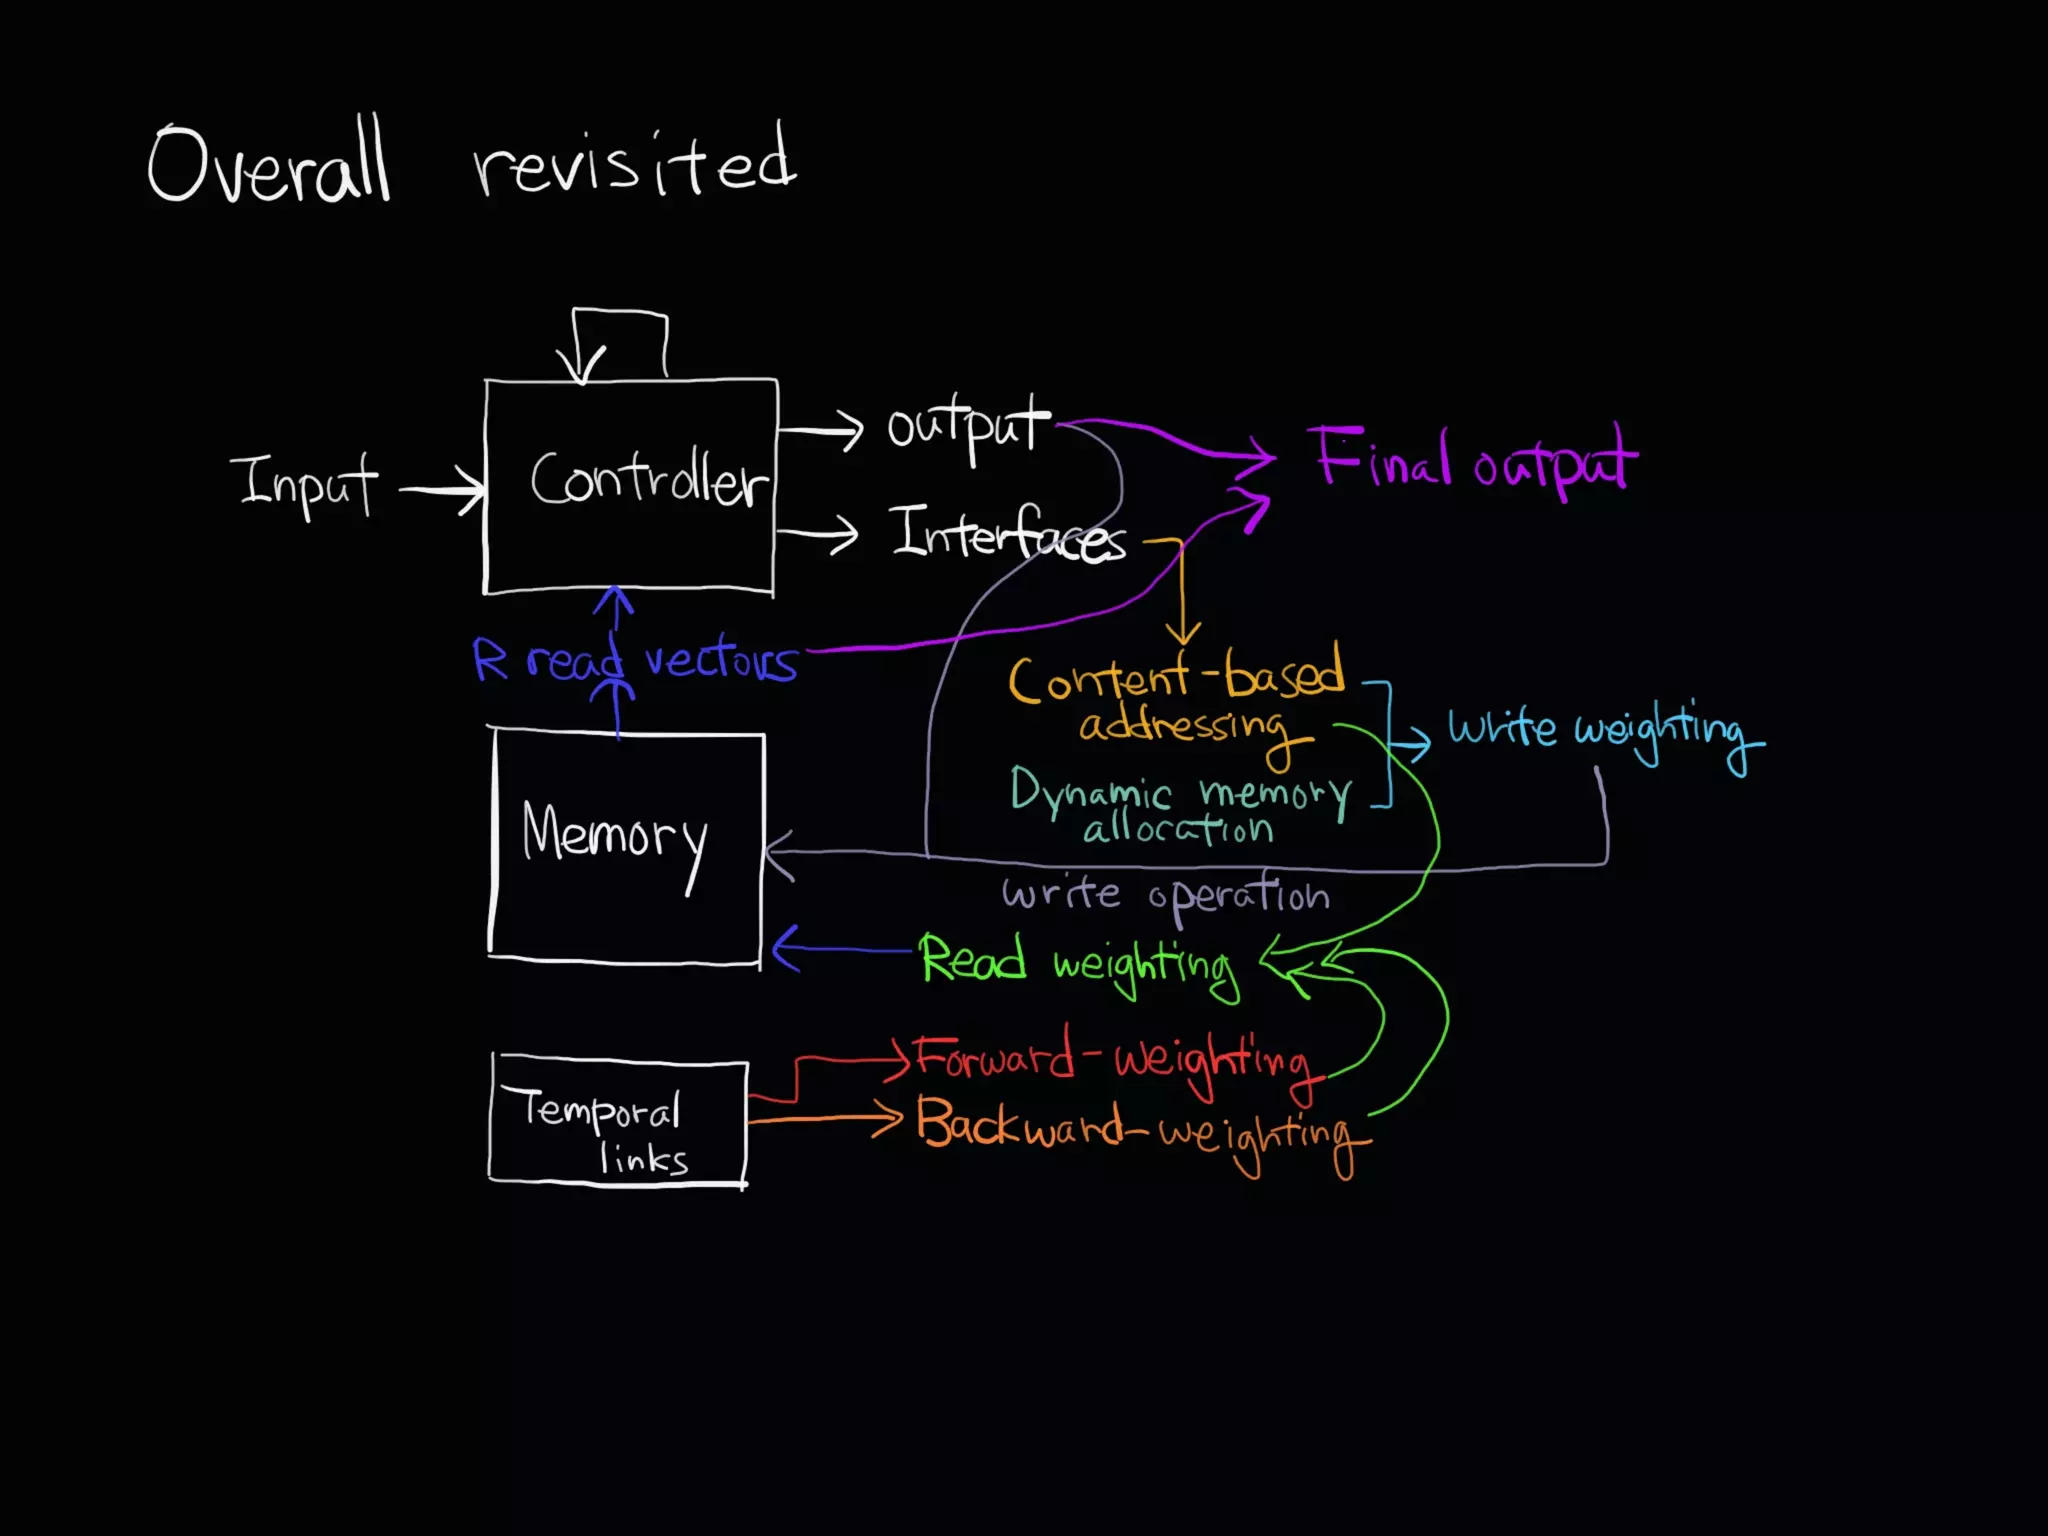 Overall revisited
output
Final output
Input
Controller
Interfaces
R read vectors
Content-based
addressing
write weighting
Dynamic memory
allocation
Memory
write operation
Read weighting
Forward-weighting
Temporal
links
Backward-weighting